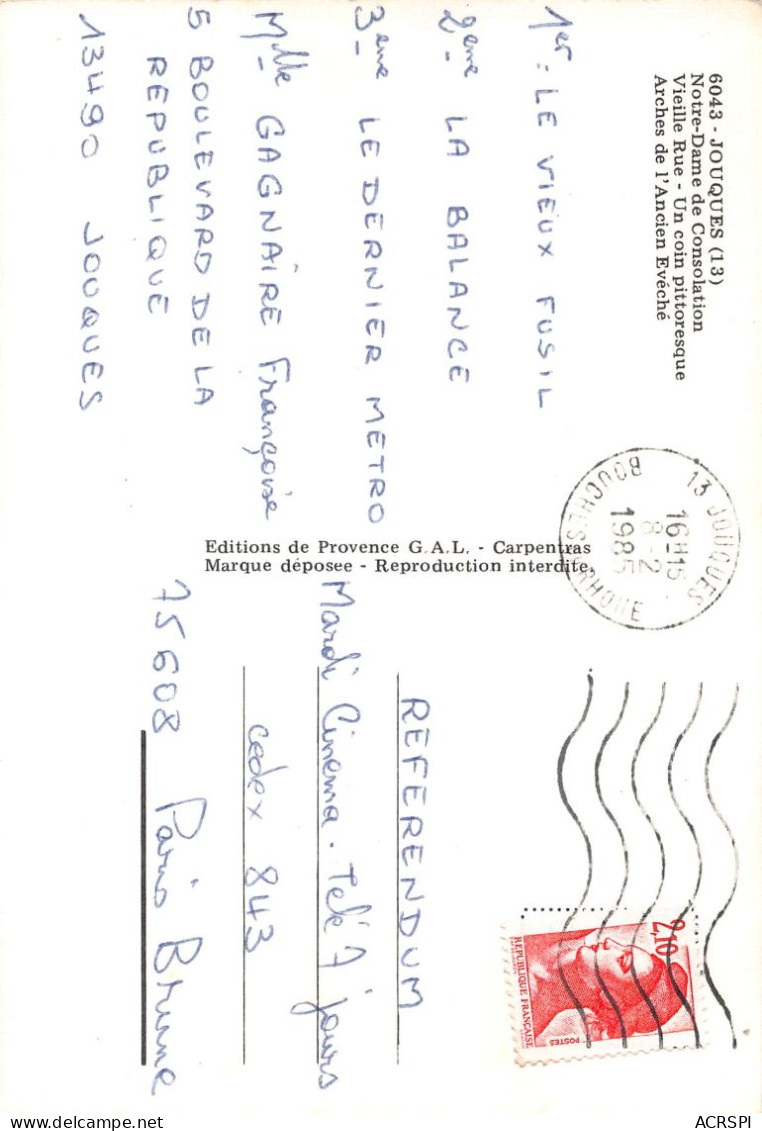 6043 - JOUQUES (13)
Notre-Dame de Consolation
Vieille Rue - Un coin pittoresque
Arches de l'Ancien Evéché
1er : LE VIEUX FUSIL
2ème LA BALANCE
3ème LE DERNIER METRO
Mlle GAGNAIRE Françoise
5 BOULEVARD DE LA
REPUBLIQUE
13490 JOUQUES
Editions de Provence G.A.L. - Carpentras
Marque déposee - Reproduction interdite
13 JOUQUES
16H15
8-2
1985
BOUCHES DU RHONE
2,10
REPUBLIQUE FRANÇAISE
POSTES
REFERENDUM
Mardi Cinema . Télé 7 jours
cedex 843
75608 Paris Brune
ACRSPI